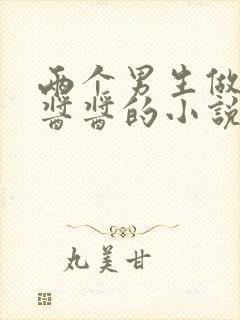 两个男生做
酱酱的小说
丸美甘